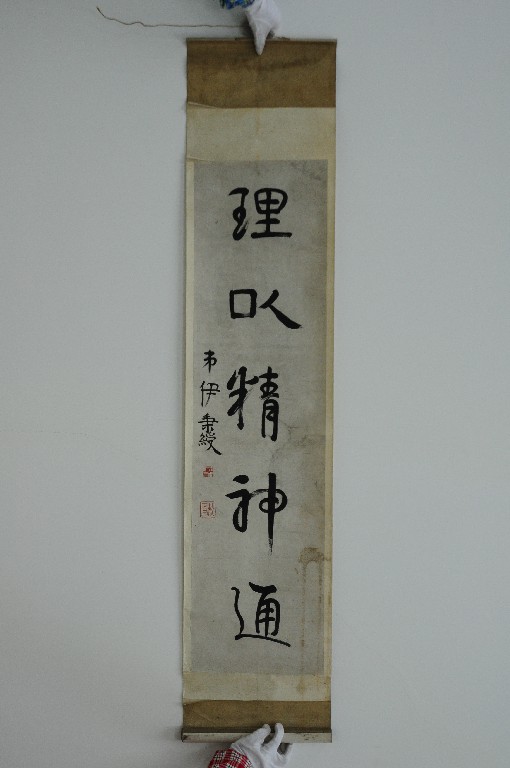 理以精神通
伊秉綬